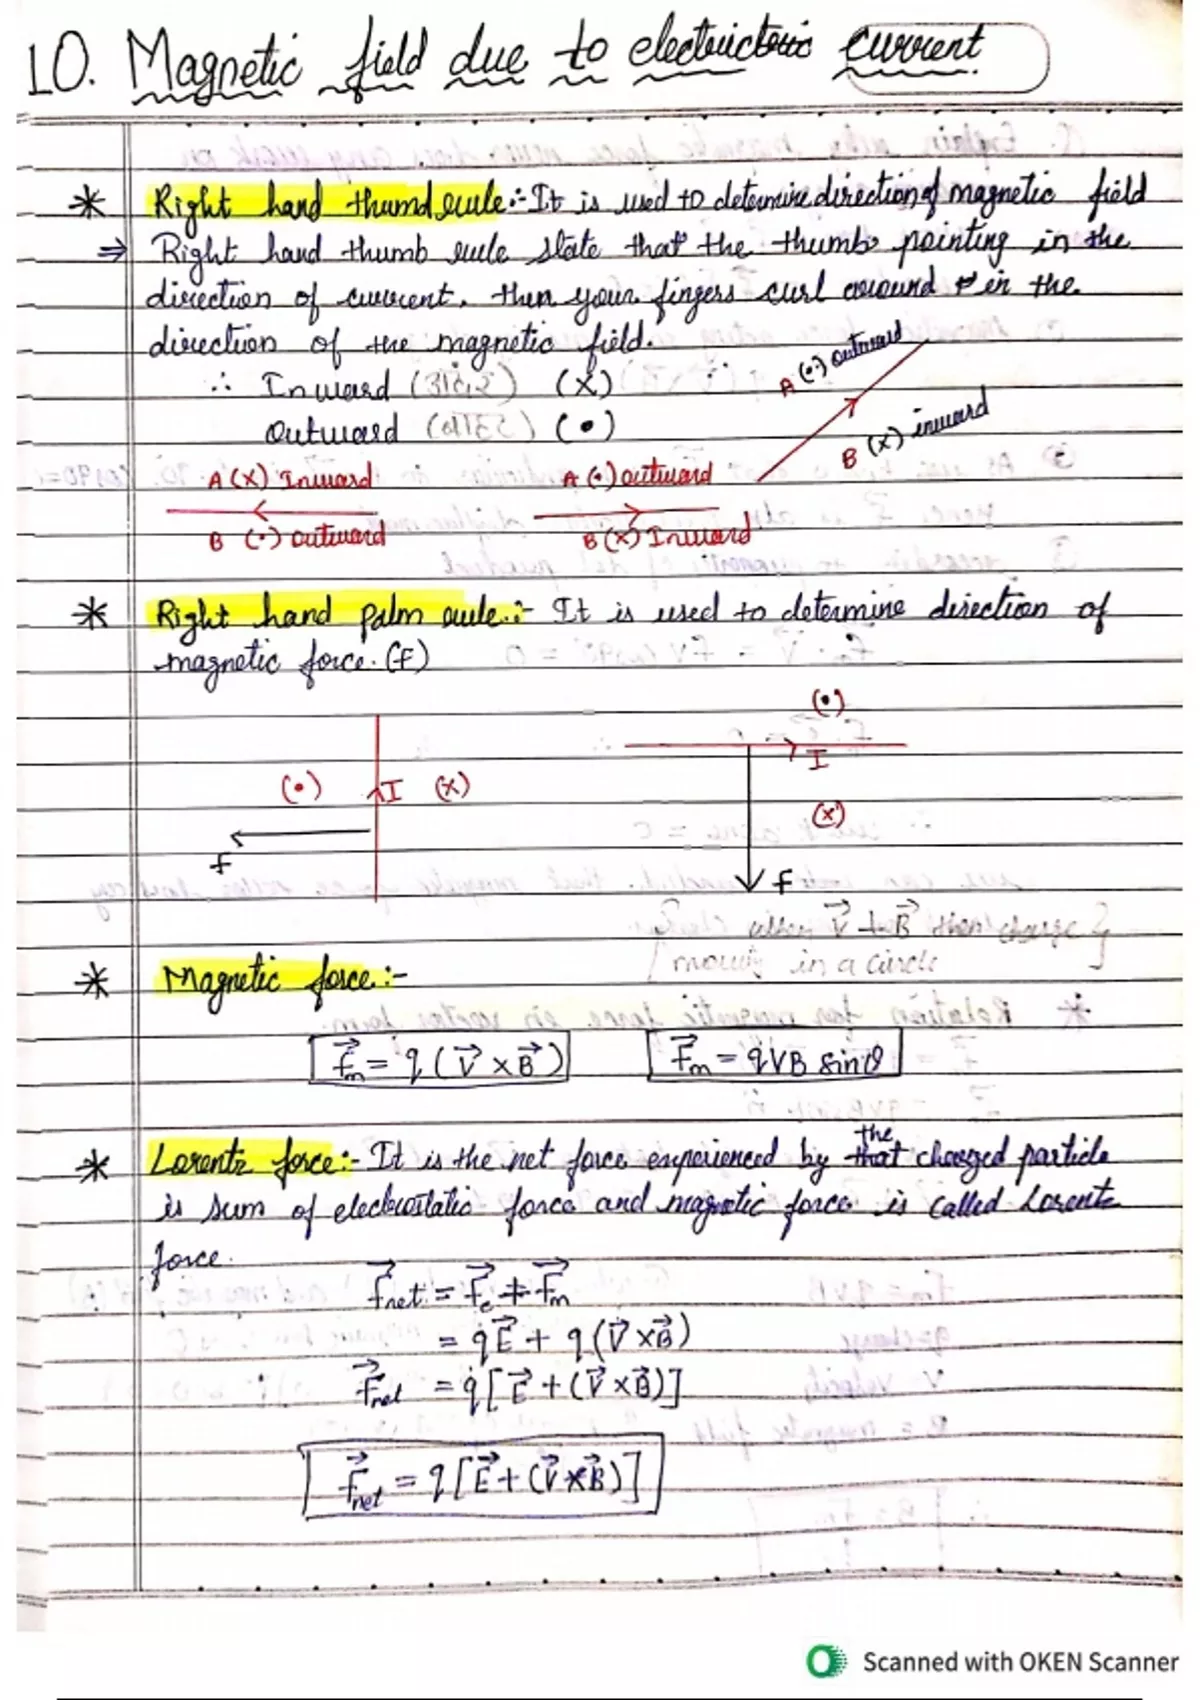 10. Magnetic field due to electrictric current
* Right hand thumd rule:- It is used to determine direction of magnetic field
⇒ Right hand thumb rule state that the thumb pointing in the
direction of current, then your fingers curl around in the
direction of the magnetic field.
A (•) outward
∴ Inward (X)
Outward (•)
B (X) inward
A (X) Inward A (•) outward
B (•) outward B (X) Inward
* Right hand palm rule:- It is used to determine direction of
magnetic force. (F)
(•)
I
(•) I (X)
(X)
f
f
when V⃗ ⊥ B⃗ then charge
moving in a circle
* Magnetic force:-
F⃗m = q (V⃗ × B⃗) F⃗m = qVB sinθ
* Lorentz force:- It is the net force experienced by the charged particle
is sum of electrostatic force and magnetic force is called Lorentz
force.
F⃗net = F⃗e + F⃗m
= qE⃗ + q (V⃗ × B⃗)
F⃗net = q [E⃗ + (V⃗ × B⃗)]
F⃗net = q [E⃗ + (V⃗ × B⃗)]
Scanned with OKEN Scanner